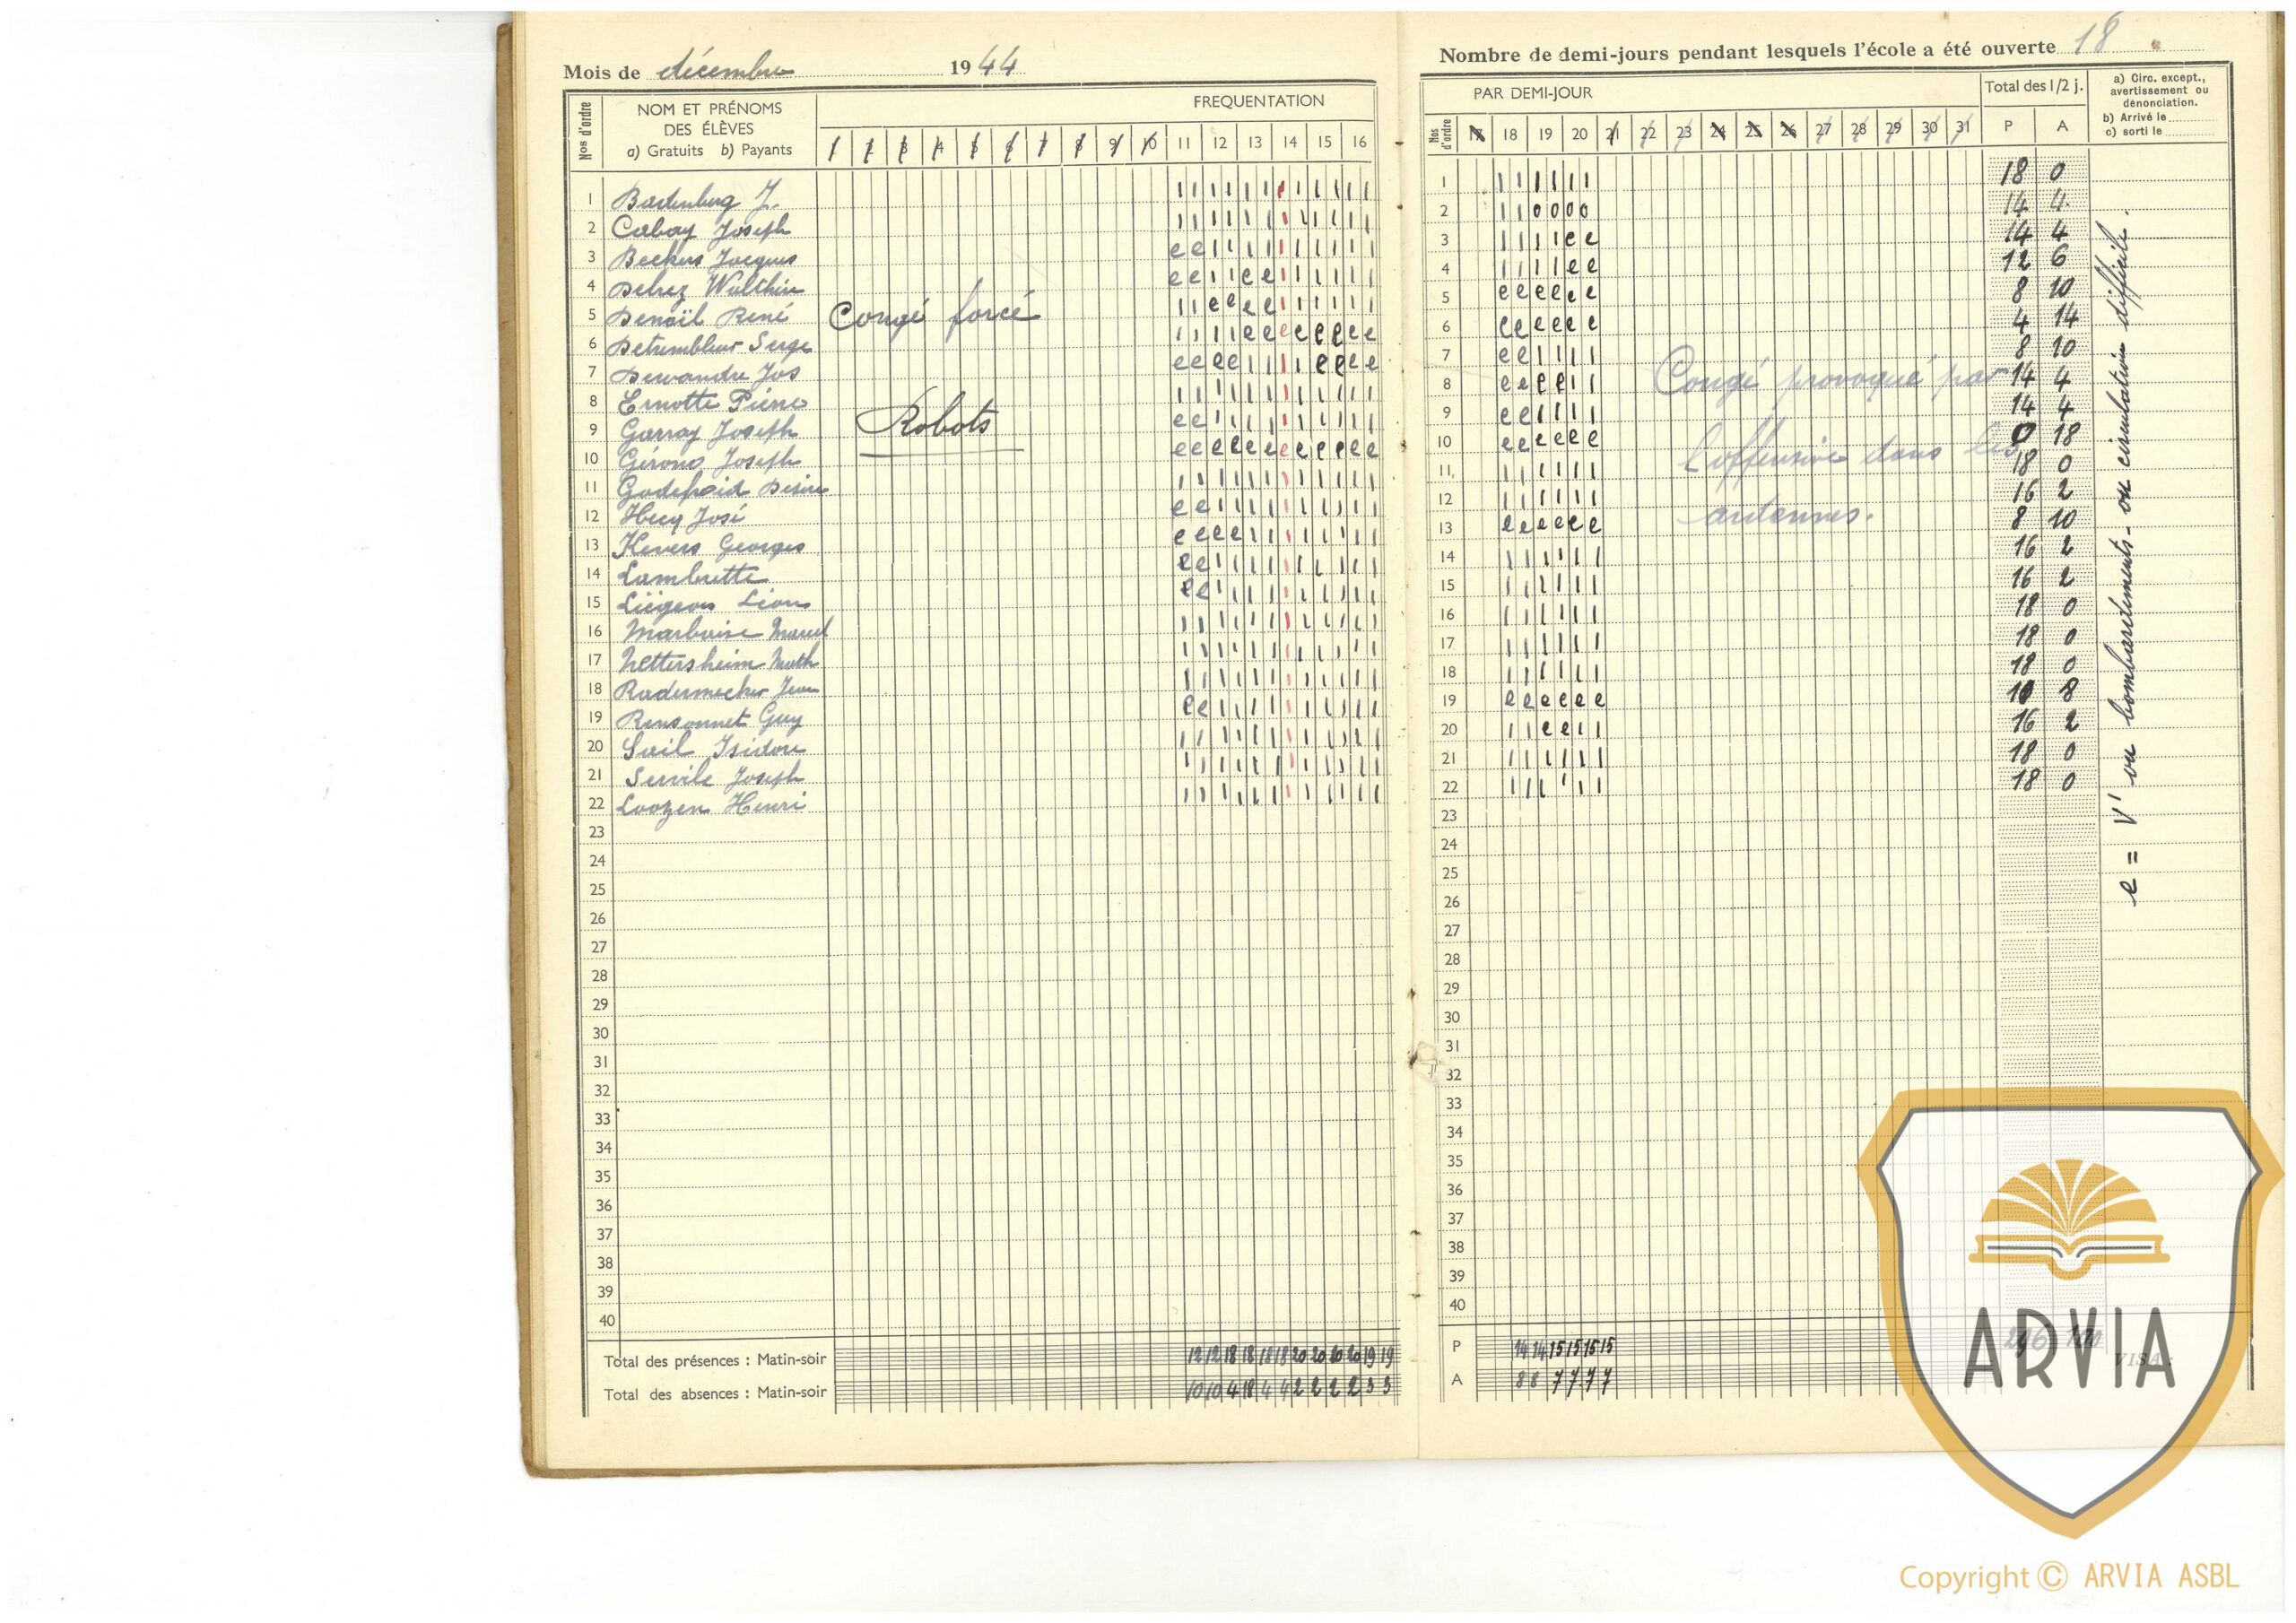 Mois de décembre 1944
Nombre de demi-jours pendant lesquels l'école a été ouverte 18
Nos d'ordre
NOM ET PRÉNOMS
DES ÉLÈVES
a) Gratuits b) Payants
FREQUENTATION
1 2 3 4 5 6 7 8 9 10 11 12 13 14 15 16
Nos d'ordre
PAR DEMI-JOUR
17 18 19 20 21 22 23 24 25 26 27 28 29 30 31
Total des 1/2 j.
P A
a) Circ. except.,
avertissement ou
dénonciation.
b) Arrivé le
c) sorti le
1 Bastenberg J. 1 18 0
2 Cabay Joseph 2 14 4
3 Beckers Jacques 3 14 4
4 Delrez Walthère 4 12 6
5 Denoël René 5 8 10
6 Detrembleur Serge 6 4 14
7 Dewandre Jos 7 8 10
8 Ernotte Pierre 8 14 4
9 Garray Joseph 9 14 4
10 Gérono Joseph 10 0 18
11 Godefroid Désiré 11 18 0
12 Hecq José 12 16 2
13 Kevers Georges 13 8 10
14 Lambrette 14 16 2
15 Liégeois Léon 15 16 2
16 Marbaise Marcel 16 18 0
17 Nettersheim Math 17 18 0
18 Radermecker Jean 18 18 0
19 Rensonnet Guy 19 10 8
20 Sail Isidore 20 16 2
21 Servile Joseph 21 18 0
22 Loozen Henri 22 18 0
Congé forcé
Robots
Congé provoqué par
l'offensive dans les
ardennes.
e = V1 ou bombardements - ou circulation difficile.
23 23
24 24
25 25
26 26
27 27
28 28
29 29
30 30
31 31
32 32
33 33
34 34
35 35
36 36
37 37
38 38
39 39
40 40
Total des présences : Matin-soir 12 12 18 18 18 18 20 20 20 20 19 19
P 14 14 15 15 15 15
Total des absences : Matin-soir 10 10 4 18 4 4 2 2 2 2 3 3
A 8 8 7 7 7 7
VISA :
ARVIA
Copyright © ARVIA ASBL